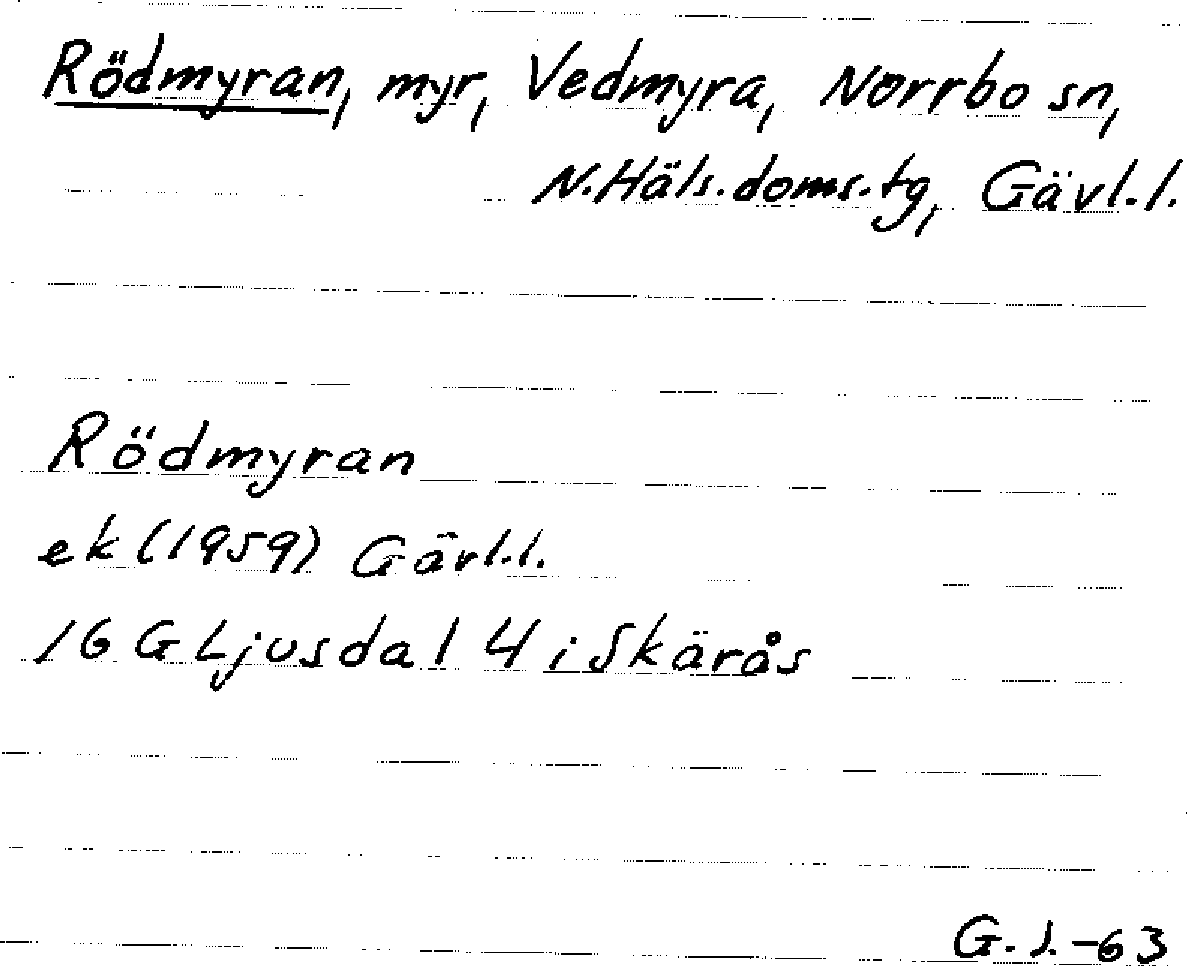 Rödmyran, myr, Vedmyra, Norrbo sn,
N.Häls.doms.tg, Gävl.l.
Rödmyran
ek (1959) Gävl.l.
16 G Ljusdal 4 i Skärås
G.J.-63